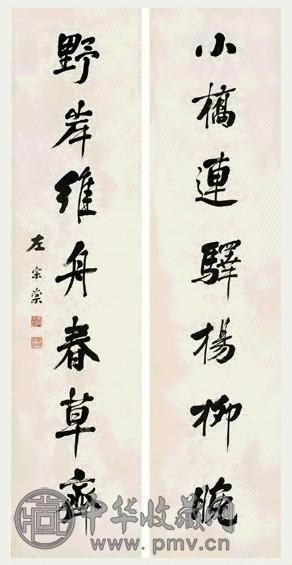 小橋連驛楊柳晚
野岸維舟春草齊
左宗棠
中华收藏网
www.pmv.cn